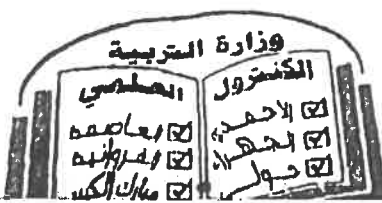 وزارة التربية
الكنترول العلمي
الاحمدي
الجهراء
حولي
العاصمة
الفروانية
مبارك الكبير